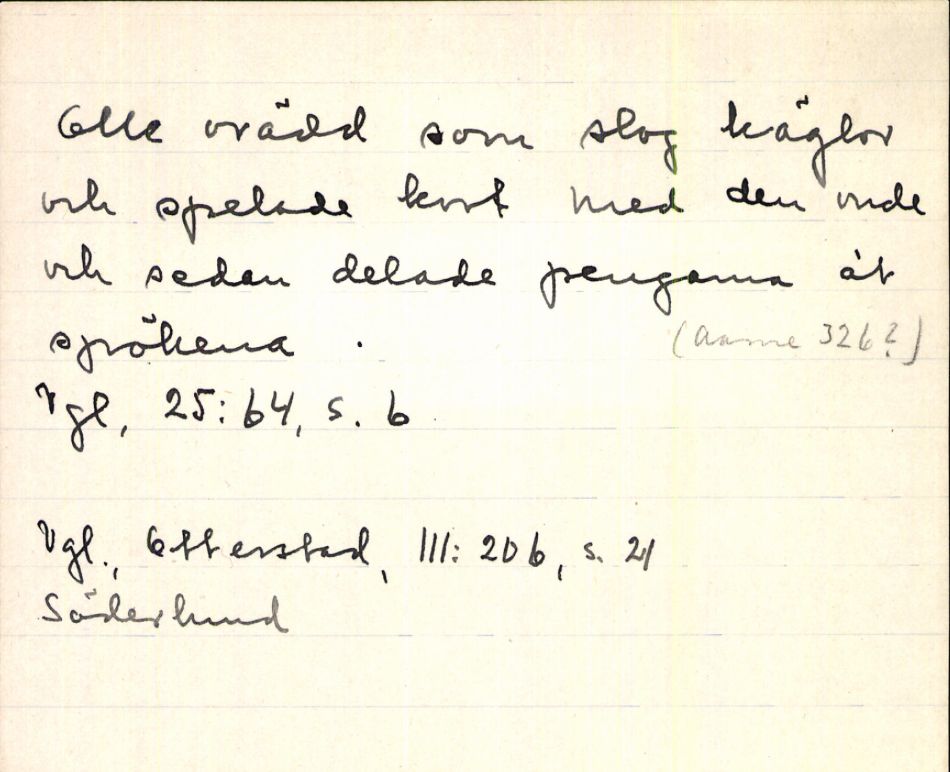 Olle orädd som slog käglor
och spelade kort med den onde
och sedan delade pengarna åt
spökena.
(Aarne 326?)
Vgl, 25:64, s. 6
Vgl., Otterstad, III: 20b, s. 21
Söderlund